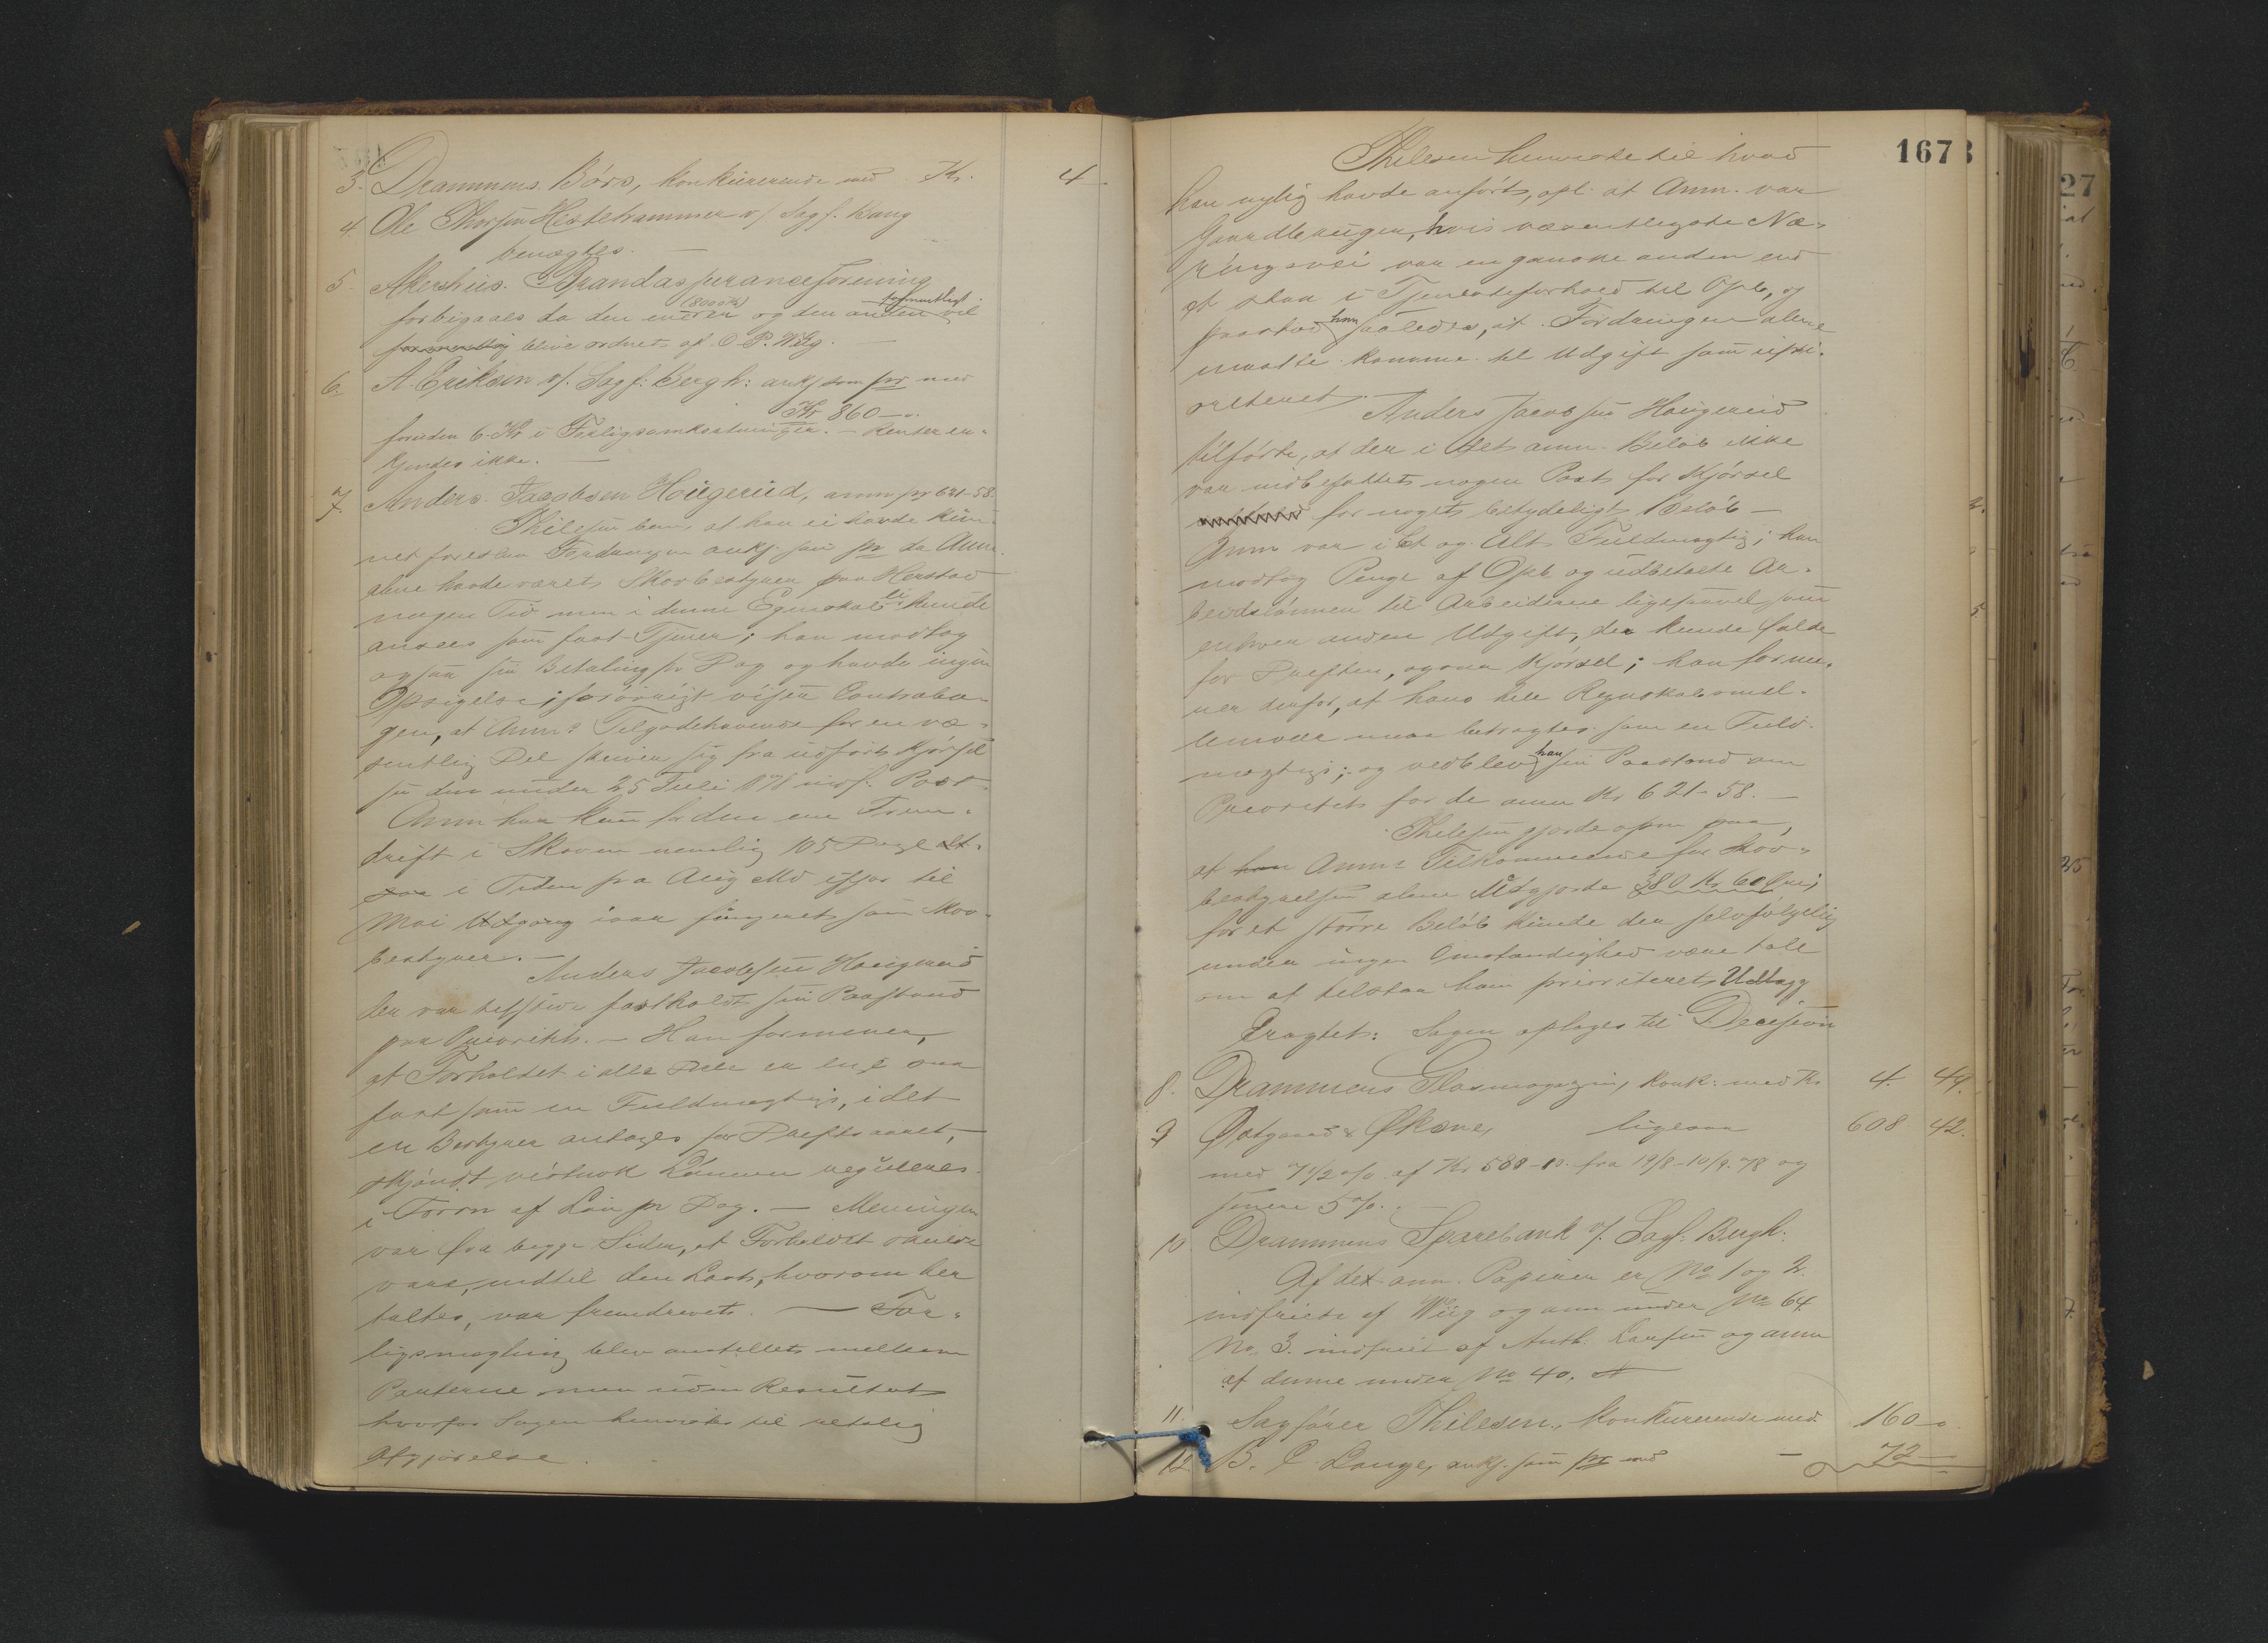 3. Drammens Börs, konkurerende med Kr. 4
4. Ole Thorsen Hestehammer v/ Sagf. Bang
benægtes. —
5. Akershus. Brandassuranceforening
forbigaaes da den ene er (8000 Kr) og den anden formentligt vil
blive ordnet af O. P. Wiig. —
6. A. Eriksen v/ Sagf. Bergh: ankj som pr med
Kr 860 —
foruden 6 Kr i Forligsomkostninger. — Renter er-
kjendes ikke. —
7. Anders Jacobsen Hougerud, anm pr 621-58.
Thilesen bem. at han ei havde kun-
net foreslaa Fordringen ankj. som pr da Anm.
alene havde været Skovbestyrer paa Herstad
nogen Tid men i denne Egenskab ei kunde
ansees som fast Tjener; han modtog
ogsaa sin Betaling pr Dag og havde ingen
Opsigelse; forövrigt viser Contrabo-
gen, at Anms Tilgodehavende for en væ-
sentlig Del skriver sig fra udfört Kjörsel
se den under 25 Juli 1878 indf. Post
Anm har kun for den ene Töm-
drift i Skoven nemlig 105 Dage alt-
saa i Tiden fra Aug Md ifjor til
Mai Udgang iaar fungeret som Skov-
bestyrer. —
Anders Jacobsen Hougerud
der var tilstede fastholdt sin Paastand
paa Prioritet. — Han formener,
at Forholdet i alle Dele er lige saa
fast som en Fuldmægtigs, idet
en Bestyrer antages for Driftsaaret,
skjöndt vistnok Lönnen reguleres
i Form af Lön pr Dag. — Meningen
var fra begge Sider, at Forholdet skulde
vare, indtil den Last, hvorom her
taltes, var fremdrevet. — For-
ligsmægling blev anstillet mellem
Parterne men uden Resultat
hvorfor Sagen henvistes til retslig
Afgjörelse.
1673
Thilesen henviste til hvad
han nylig havde anfört, opl. at Anm. var
Gaardbruger, hvis væsentligste Næ-
ringsvei var en ganske anden end
at staa i Tjenesteforhold til Opb., og
paastod han saaledes, at Fordringen alene
maatte komme til Udgift som upri-
oriteret.
Anders Jacobsen Hougerud
tilförte, at der i det anm. Belöb ikke
var indbefattet nogen Post for Kjörsel
for noget betydeligt Belöb —
Anm var i Et og Alt Fuldmægtig; han
modtog Penge af Opb. og udbetalte Ar-
beidslönnen til Arbeiderne ligesaavel som
enhver anden Udgift, der kunde falde
for Driften, ogsaa Kjörsel; han forme-
ner derfor, at hans hele Regnskabsmel-
lemværende maa betragtes som en Fuld-
mægtigs; og vedblev han sin Paastand om
Prioritet for de anm Kr 621-58. —
Thilesen gjorde opm paa,
at Anms Tilkommende for Skov-
bestyrelsen alene udgjorde 380 Kr 60 Öre;
for et större Belöb kunde der selvfölgelig
under ingen Omstændighed være Tale
om at tilstaa ham prioriteret Udlæg
Eragtet: Sagen optages til Decision
8. Drammens Glasmagazin, konk: med Kr 4. 49.
9 Östgaard & Økern, ligesaa 608 42.
med 7 1/2 % af Kr 588-10. fra 19/8-10/9.78 og
senere 5 %. —
10 Drammens Sparebank v/ Sagf. Bergh.
Af det anm. Papirer er No 1 og 2.
indfriet af Wiig og anm under No 64
No 3. indfriet af Anth. Larsen og anm
af denne under No 40.
11. Sagförer Thilesen, konkurerende med 160 —
12. B. C. Lange, ankj. som pr med — 72 —